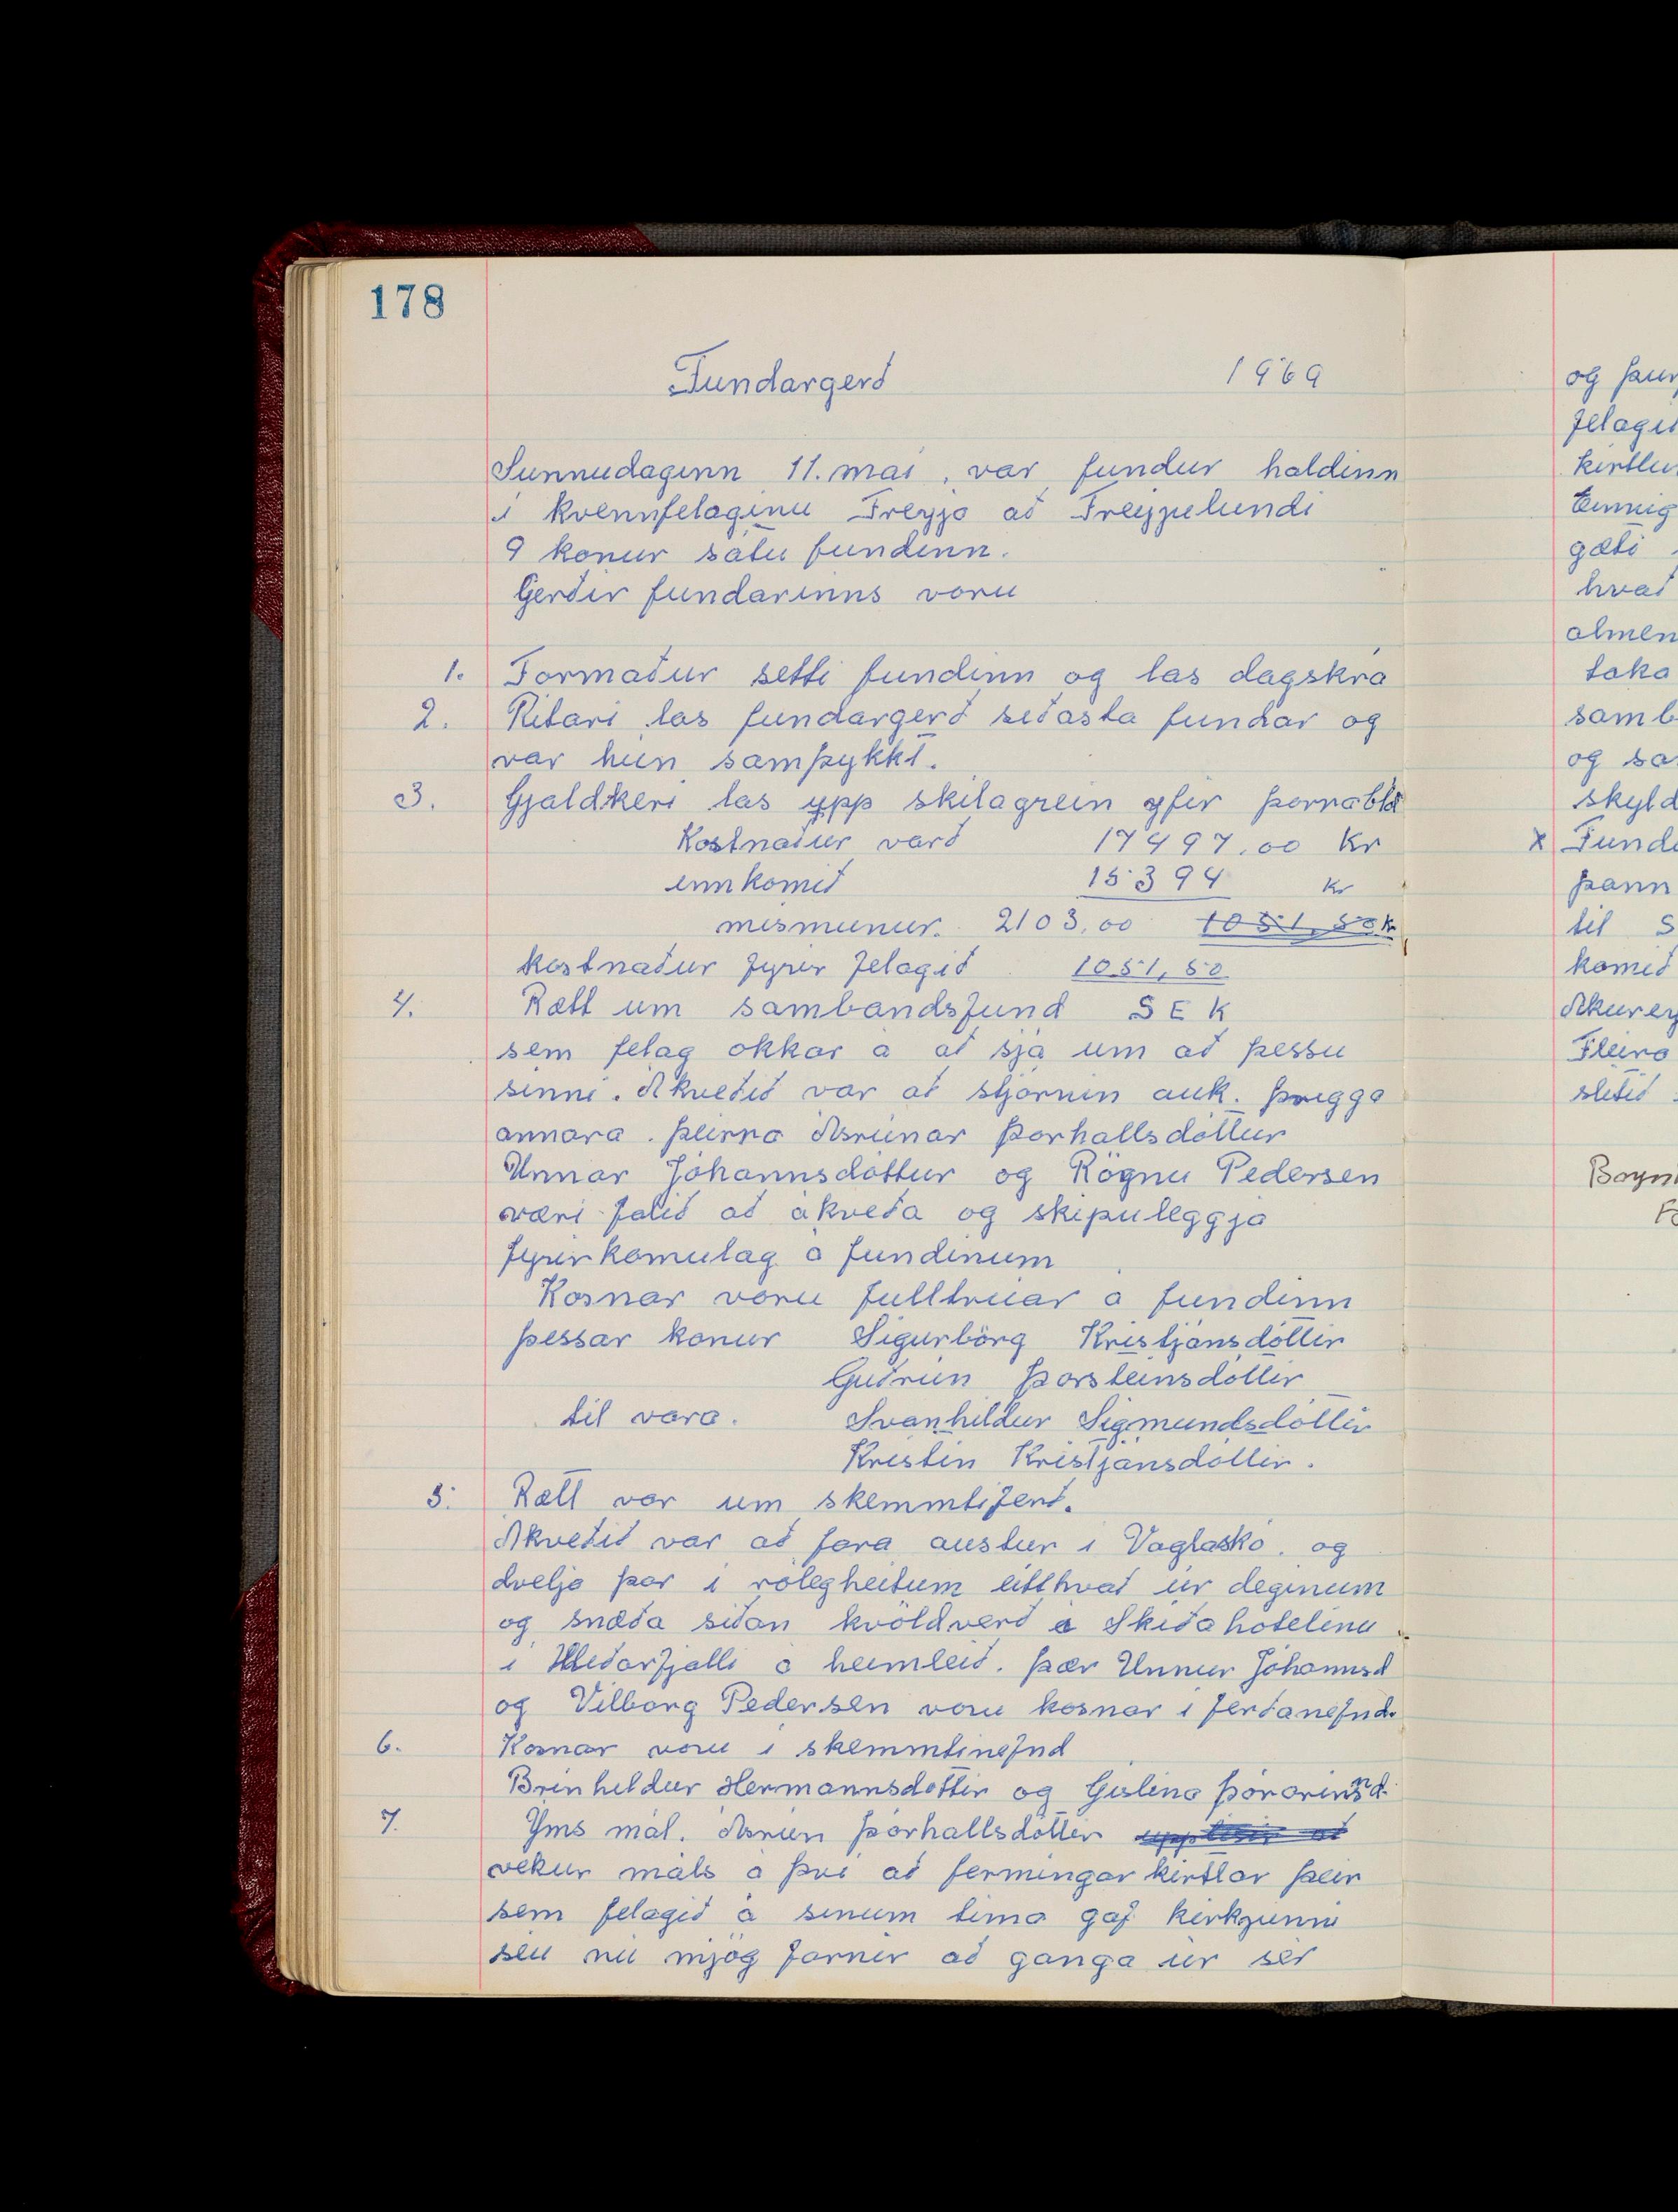 178
Fundargerð 1969
Sunnudaginn 11. mai, var fundur haldinn
i kvennfelaginu Freyja að Freyjulundi
9 konur sátu fundinn.
Gerðir fundarinns voru
1. Formaður setti fundinn og las dagskrá
2. Ritari las fundargerð siðasta fundar og
var hún samþykkt.
3. Gjaldkeri las upp skilagrein yfir þorrablót
Kostnaður varð 17497.00 Kr
innkomið 15394 Kr
mismunur. 2103,00 1051,50 k
kostnaður fyrir felagið 1051,50
4. Rætt um sambandsfund S E K
sem felag okkar á að sjá um að þessu
sinni. Akveðið var að stjórnin auk. þriggja
annara. þeirra Asrúnar Þorhallsdóttur
Unnar Jóhannsdóttur og Rögnu Pedersen
væri falið að ákveða og skipuleggja
fyrirkomulag á fundinum
Kosnar voru fulltrúar á fundinn
þessar konur Sigurbörg Kristjánsdóttir
Guðrún Þorsteinsdóttir
til vara. Svanhildur Sigmundsdóttir
Kristin Kristjánsdóttir.
5. Rætt var um skemmtiferð.
Akveðið var að fara austur i Vaglaskó. og
dvelja þar i rólegheitum eitthvað úr deginum
og snæða siðan kvöldverð á Skiðahótelinu
i Hliðarfjalli á heimleið. þær Unnur Jóhannsd
og Vilborg Pedersen voru kosnar i ferðanefnd.
6. Kosnar voru i skemmtinefnd
Brinhildur Hermannsdottir og Gislina þórarinsd.
7. Yms mál. Asrún þórhallsdóttir
vekur máls á þvi að fermingar kirtlar þeir
sem felagið á sinum tima gaf kirkjunni
séu nú mjög farnir að ganga úr sér
og þur
felagi
kirtlu
Einnig
gæti
hvað
almen
taka
samb
og sa
skyld
x Fund
þann
til S
komið
Akurey
Fleira
slitið